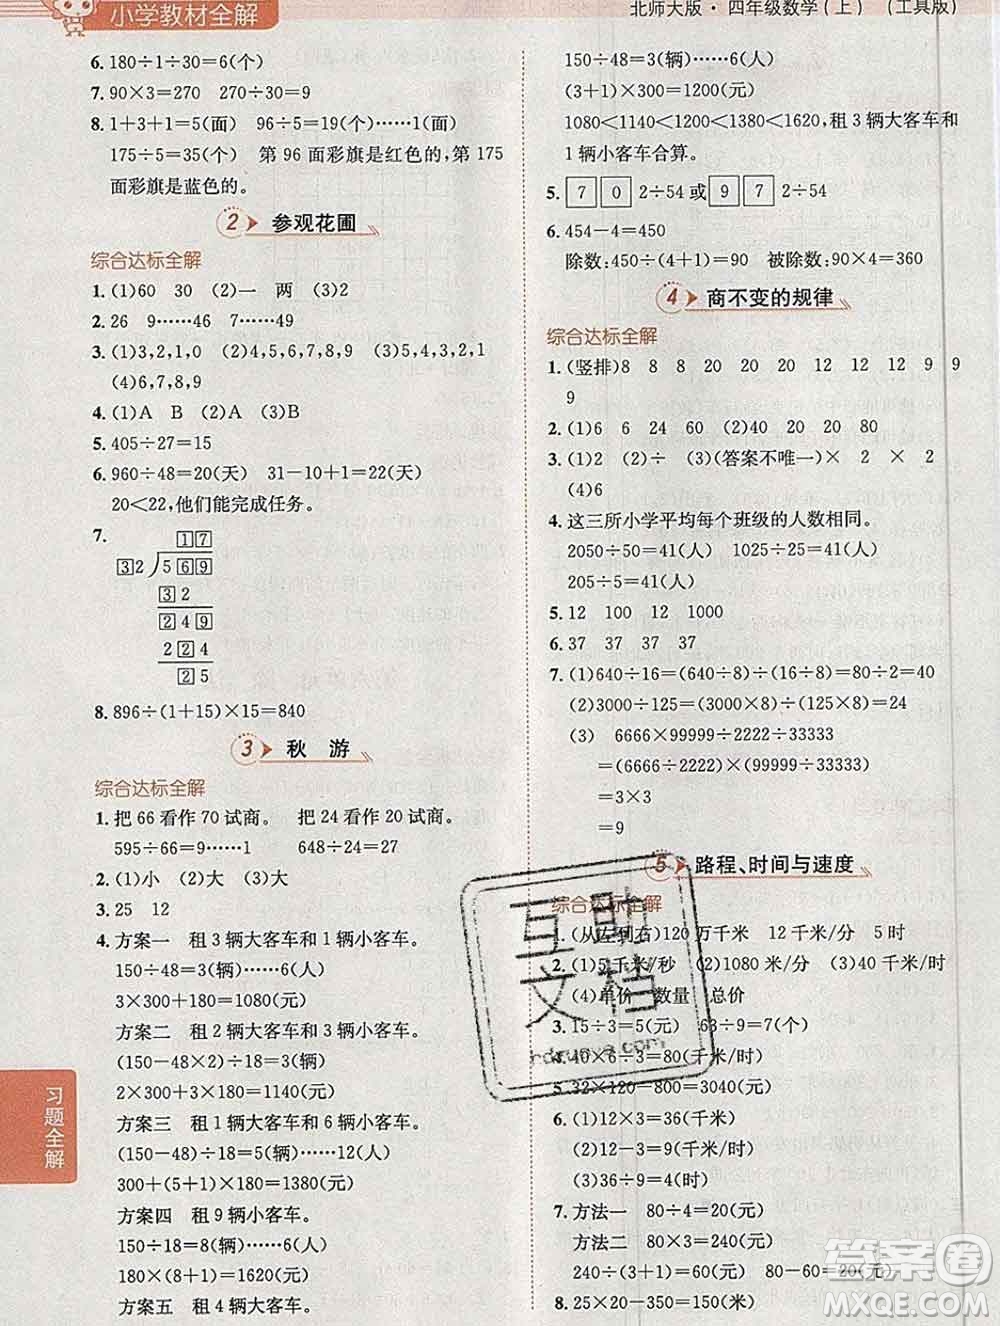 小学教材全解
北师大版·四年级数学(上) (工具版)
6. 180÷1÷30=6(个)
7. 90×3=270 270÷30=9
8. 1+3+1=5(面) 96÷5=19(个)……1(面)
175÷5=35(面) 第96面彩旗是红色的,第175
面彩旗是蓝色的。
2 参观花圃
综合达标全解
1. (1)60 30 (2)一 两 (3)2
2. 26 9……9 7……49
3. (1)3,2,1,0 (2)4,5,6,7,8,9 (3)5,4,3,2,1
(4)6,7,8,9
4. (1)A B (2)A (3)B
5. 405÷27=15
6. 960÷48=20(天) 31-10+1=22(天)
20<22,他们能完成任务。
7.
17
32 ) 5 6 9
3 2
2 4 9
2 2 4
2 5
8. 896÷(1+15)×15=840
3 秋 游
综合达标全解
1. 把66看作70试商。 把24看作20试商。
595÷66=9……1 648÷24=27
2. (1)小 (2)大 (3)大
3. 25 12
4. 方案一 租3辆大客车和1辆小客车。
150-48×3=6(人)
3×300+180=1080(元)
方案二 租2辆大客车和3辆小客车。
(150-48×2)÷18=3(辆)
2×300+3×180=1140(元)
方案三 租1辆大客车和6辆小客车。
(150-48)÷18=5(辆)……12(人)
300+(5+1)×180=1380(元)
方案四 租9辆小客车。
150÷18=8(辆)……6(人)
180×(8+1)=1620(元)
方案五 租4辆大客车。
150÷48=3(辆)……6(人)
(3+1)×300=1200(元)
1080<1140<1200<1380<1620,租3辆大客车和
1辆小客车合算。
5. 7 0 2÷54或 9 7 2÷54
6. 454-4=450
除数:450÷(4+1)=90 被除数:90×4=360
4 商不变的规律
综合达标全解
1. (竖排)8 8 8 20 20 20 12 12 12 9 9
9
2. (1)6 6 24 60 (2)40 20 20 80
3. (1)2 (2)÷ (3)(答案不唯一)× 2 × 2
(4)6
4. 这三所小学平均每个班级的人数相同。
2050÷50=41(人) 1025÷25=41(人)
205÷5=41(人)
5. 12 100 12 1000
6. 37 37 37 37
7. (1)640÷16=(640÷8)÷(16÷8)=80÷2=40
(2)3000÷125=(3000×8)÷(125×8)=24
(3) 6666×99999÷2222÷33333
=(6666÷2222)×(99999÷33333)
=3×3
=9
5 路程、时间与速度
综合达标全解
1. (从左到右)120万千米 12千米/分 5时
2. (1)5千米/秒 (2)1080米 (3)40千米/时
(4)单价 数量 总价
3. 15÷3=5(元) 63÷9=7(个)
4. 40×6÷3=80(千米/时)
5. 32×120-800=3040(元)
6. (1)12×3=36(千米)
(2)36÷2=18(千米/时)
(3)36÷9=4(千米/时)
7. 方法一 80÷4=20(元)
方法二 80×3=240(元)
240÷(3+1)=60(元) 80-60=20(元)
8. 25×20-350=150(米)
习题全解
互助
文档
hdzuoye.com
答案圈
MXQE.COM